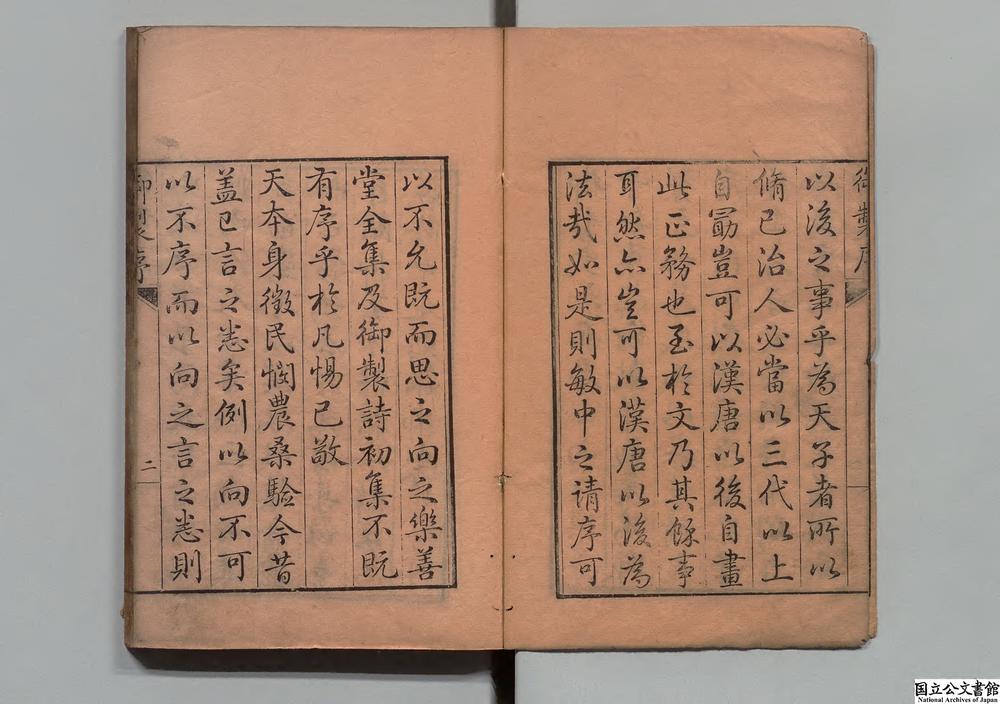 御製序
以後之事乎為天子者所以
脩己治人必當以三代以上
自勗豈可以漢唐以後自畫
此正務也至於文乃其餘事
耳然亦豈可以漢唐以後為
法哉如是則敏中之請序可
以不允既而思之向之樂善
堂全集及御製詩初集不既
有序乎於凡惕己敬
天本身徵民憫農桑驗今昔
蓋已言之悉矣例以向不可
以不序而以向之言之悉則
御製序
二
国立公文書館
National Archives of Japan